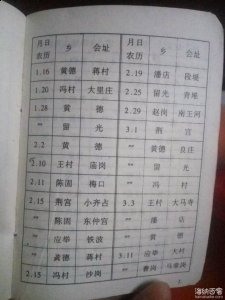 月日 乡 会址 月日 乡 会址
农历 农历
1.16 黄德 蒋村 2.19 潘店 段堤
1.20 冯村 大里庄 2.25 留光 青堆
1.28 黄 德 2.29 赵岗 南王河
〃 留 光 3.1 荆 宫
2.2 黄 德 〃 黄德 良庄
2.10 王村 庙岗 〃 留 光
2.11 陈固 梅口 〃 冯 村
2.15 荆宫 小齐占 3.3 王村 大马寺
〃 陈固 东仲宫 〃 潘 店
〃 应举 铁波 〃 黄 德
〃 黄德 韩村 3.11 应举 大村
2.15 冯村 沙岗 〃 曹岗
1
海纳百客